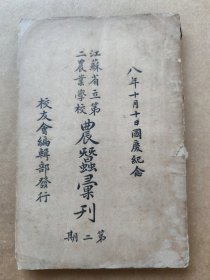 八年十月十日國慶紀念
江蘇省立第
二農業學校
農蠶彙刊
第二期
校友會編輯部發行